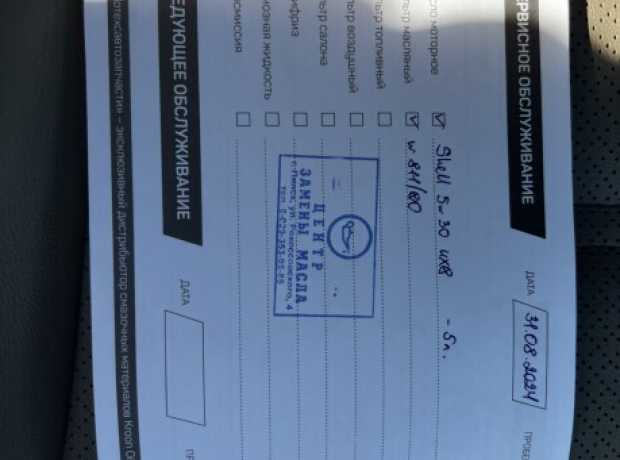 ЕРВИСНОЕ ОБСЛУЖИВАНИЕ ДАТА 31.08.2024 ПРОБЕ
сло моторное Shell 5w30 - 5л.
ьтр масляный W 811/80
ьтр топливный
ьтр воздушный
ьтр салона
ифриз
мозная жидкость
нсмиссия
ЦЕНТР
ЗАМЕНЫ МАСЛА
г. Пинск, ул. Рокоссовского, 4
ЕДУЮЩЕЕ ОБСЛУЖИВАНИЕ ДАТА ПР
ртехсавтозапчасти» – эксклюзивный дистрибьютор смазочных материалов Kroon O